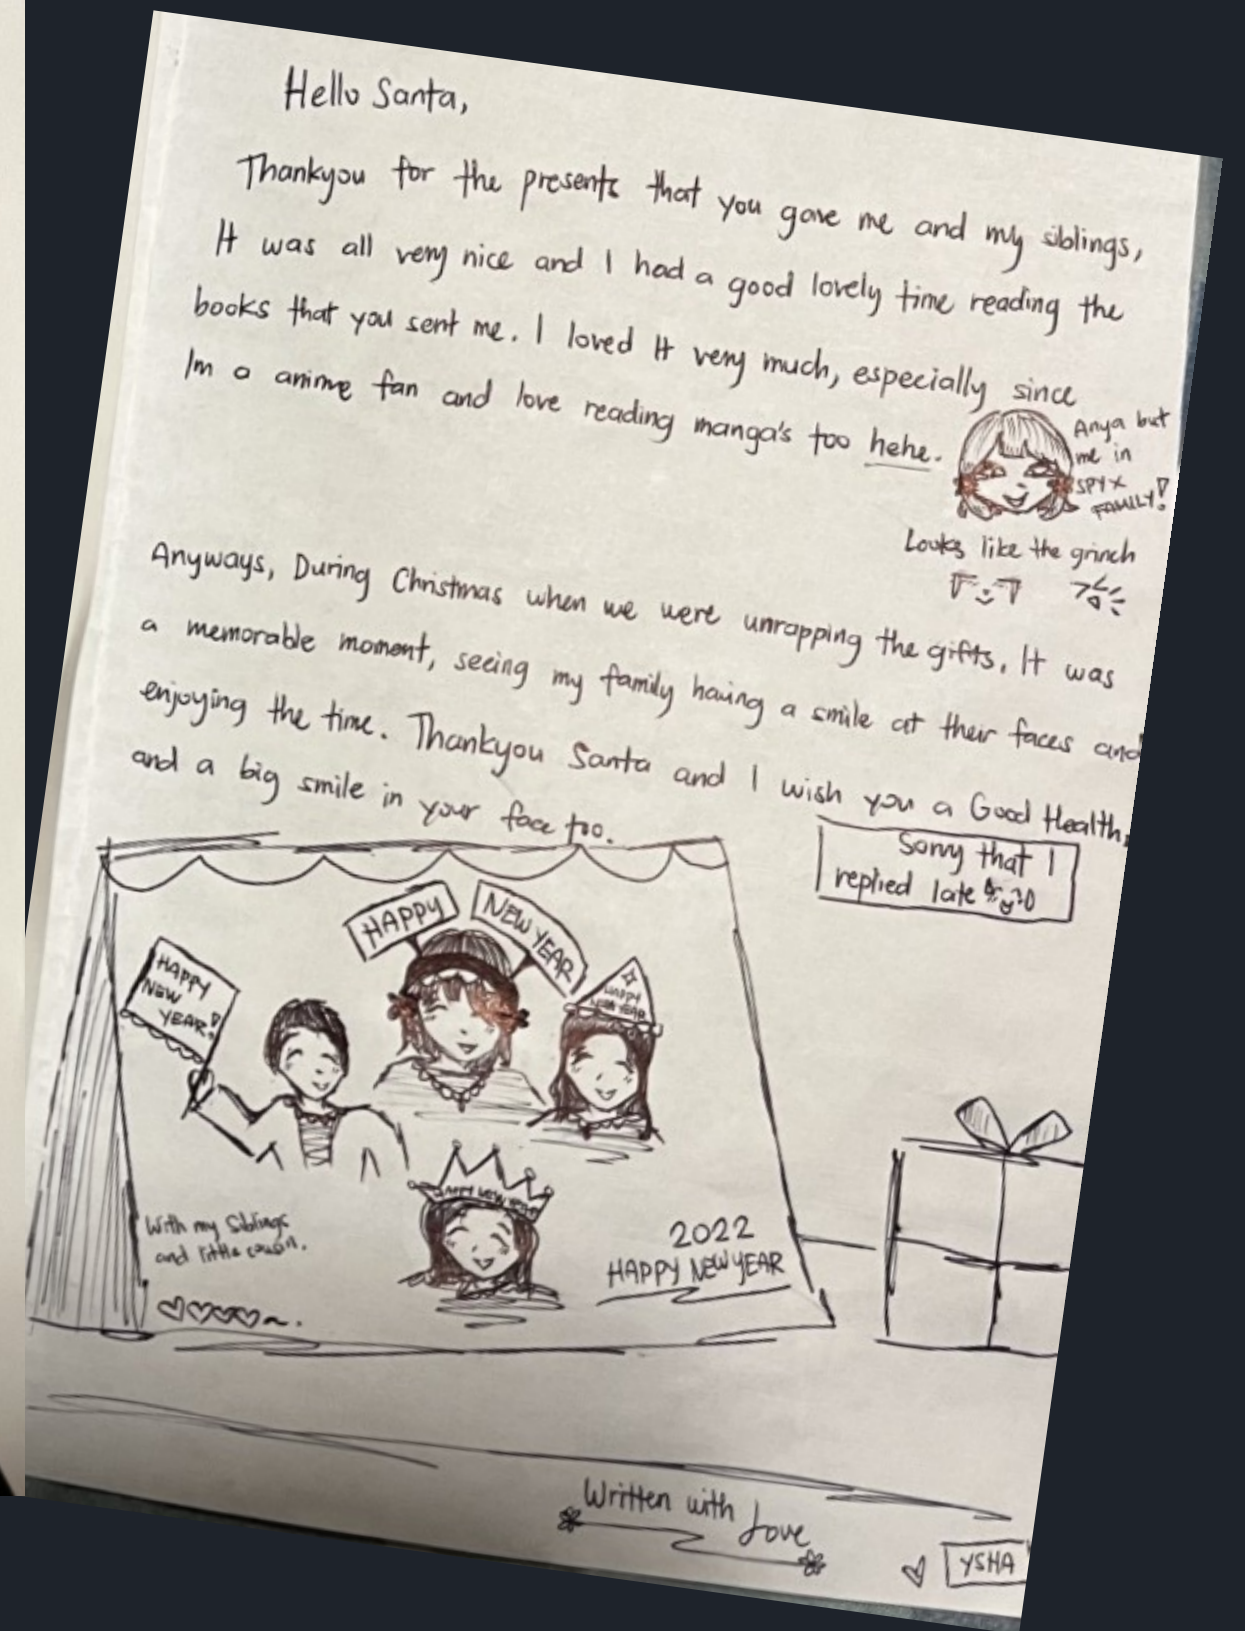 Hello Santa,
Thankyou for the presents that you gave me and my siblings,
It was all very nice and I had a good lovely time reading the
books that you sent me. I loved It very much, especially since
Im a anime fan and love reading manga's too hehe.
Anya but
me in
SPY X
FAMILY!
Looks like the grinch
Anyways, During Christmas when we were unrapping the gifts, It was
a memorable moment, seeing my family having a smile at their faces and
enjoying the time. Thankyou Santa and I wish you a Good Health,
and a big smile in your face too.
Sorry that I
replied late
HAPPY
NEW YEAR
HAPPY
NEW
YEAR!
HAPPY
NEW YEAR
HAPPY NEW YEAR
With my siblings
and little cousin.
2022
HAPPY NEW YEAR
Written with
Love
YSHA